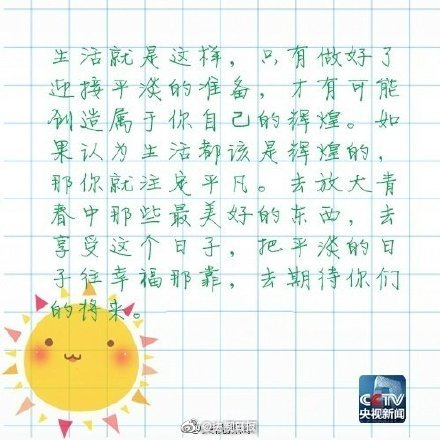 生活就是这样，只有做好了
迎接平淡的准备，才有可能
创造属于你自己的辉煌。如
果认为生活都该是辉煌的，
那你就注定平凡。去放大青
春中那些最美好的东西，去
享受这个日子，把平淡的日
子往幸福那靠，去期待你们
的将来。
CCTV
央视新闻